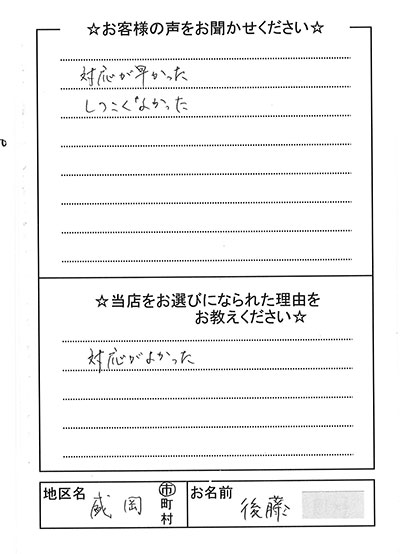 ☆お客様の声をお聞かせください☆
対応が早かった
しつこくなかった
☆当店をお選びになられた理由を
お教えください☆
対応がよかった
地区名 盛岡 市町村 お名前 後藤